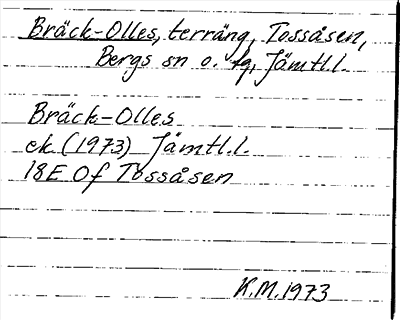 Bräck-Olles, terräng, Tossåsen,
Bergs sn o. tg, Jämtl.l.
Bräck-Olles
ek. (1973) Jämtl.l.
18E 0f Tossåsen
K.M. 1973